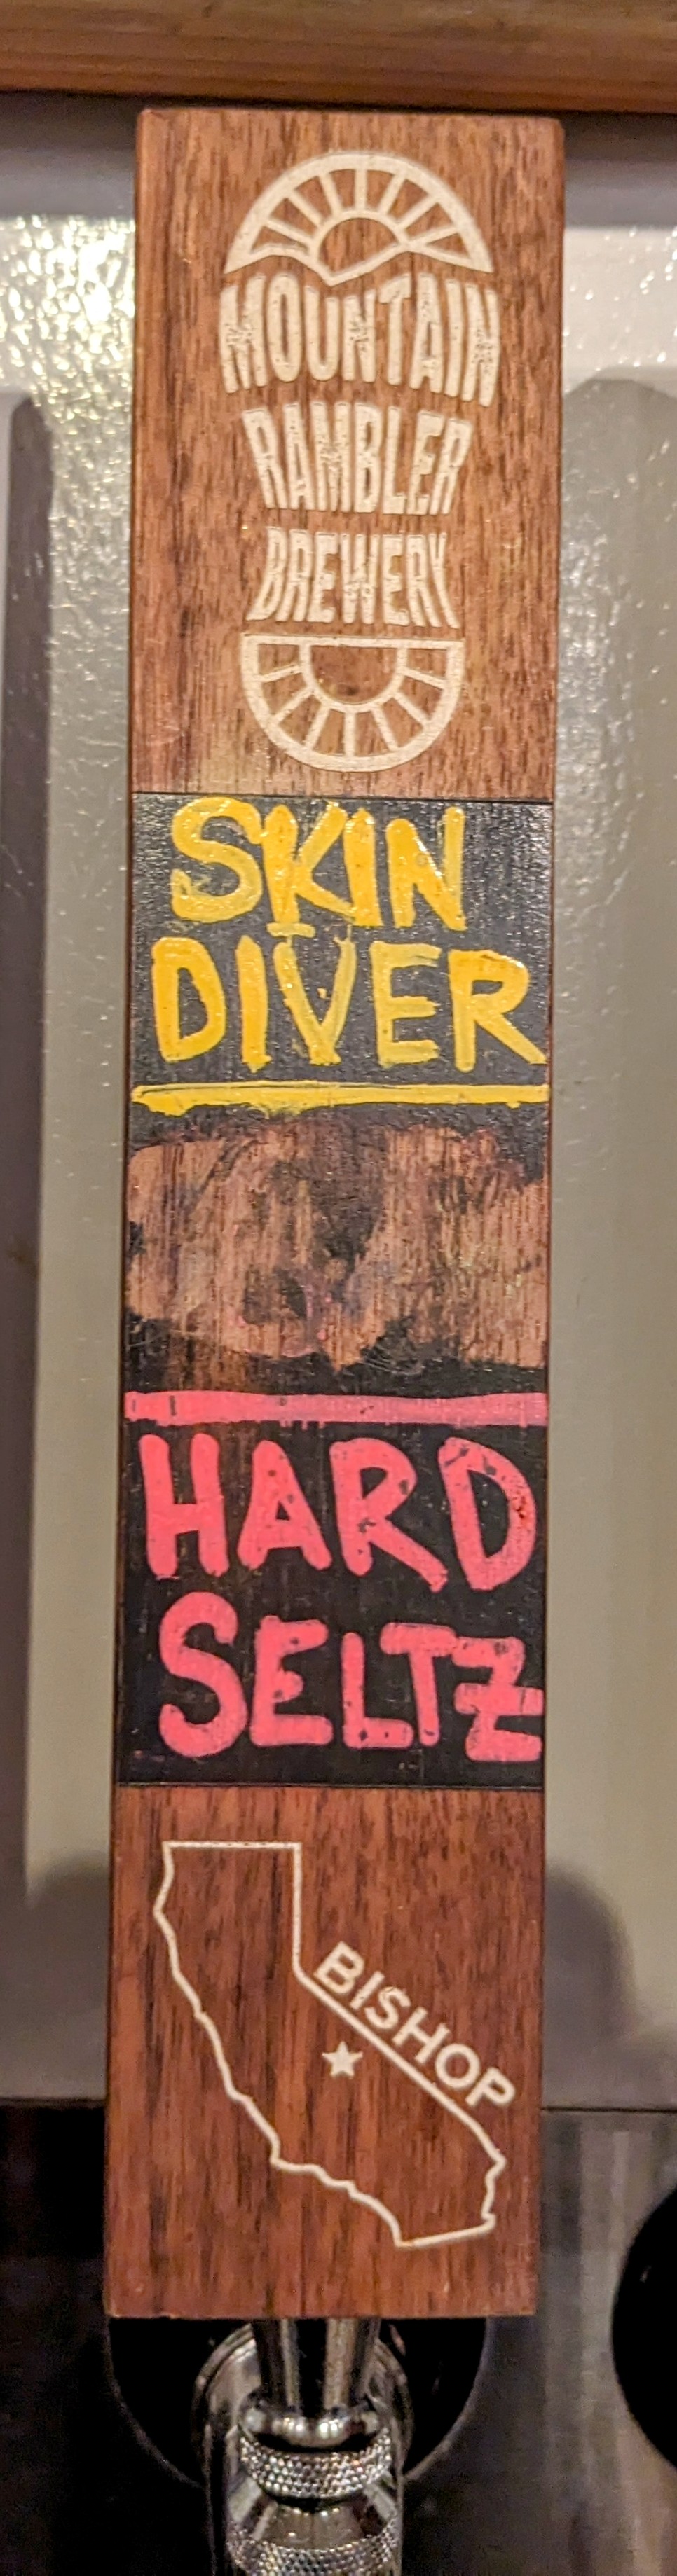 MOUNTAIN
RAMBLER
BREWERY
SKIN
DIVER
HARD
SELTZ
BISHOP